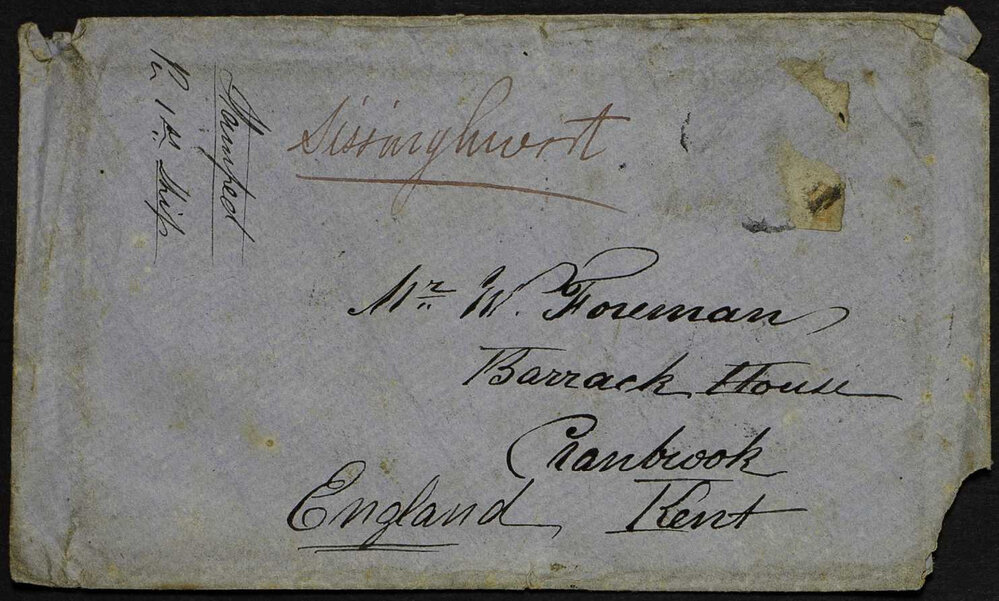 Stamped
Pr 1st Ship
Sissinghurst
Mr W. Foreman
Barrack House
Cranbrook
Kent
England